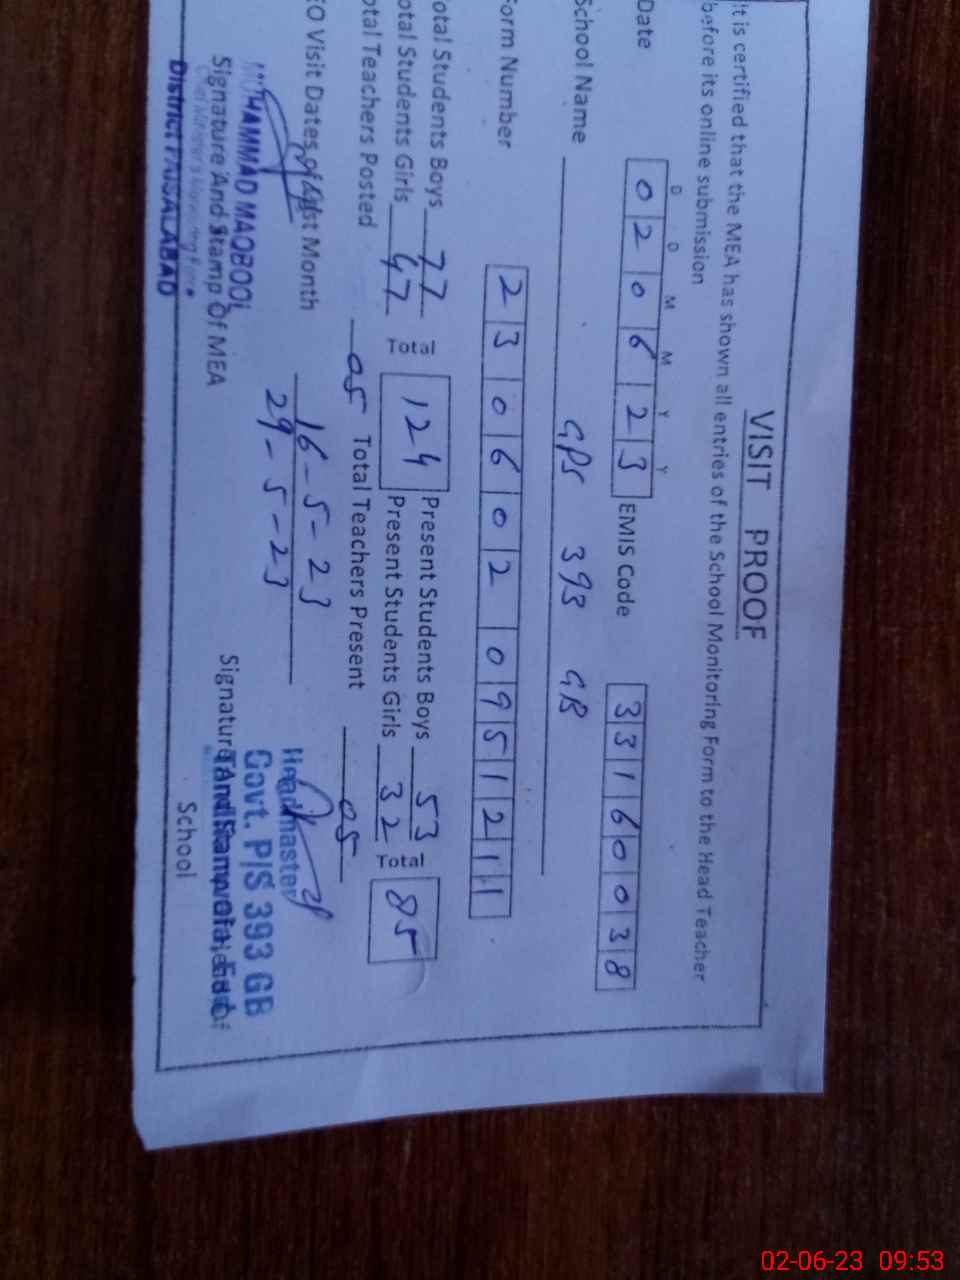 VISIT PROOF
It is certified that the MEA has shown all entries of the School Monitoring Form to the Head Teacher
before its online submission
D D M M Y Y
Date 020623 EMIS Code 33160038
School Name GPS 393 GB
Form Number 2306020951211
Total Students Boys 77 Present Students Boys 53
Total Students Girls 47 124 Present Students Girls 32 85
Total Teachers Posted 05 Total Teachers Present 05
Visit Dates of Last Month 16-5-23
29-5-23
MUHAMMAD MAQBOOL
Signature And Stamp Of MEA
District FAISALABAD
Headmaster
Govt. P/S 393 GB
Signature And Stamp of
School
02-06-23 09:53